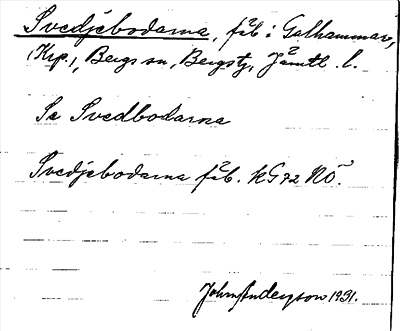 Svedjebodarna, fäb. i Galhammar,
(Krp.), Bergs sn, Bergs tg, Jämtl. l.
Se Svedbodarna
Svedjebodarna fäb. kG72 NÖ.
John Anderzson 1931.